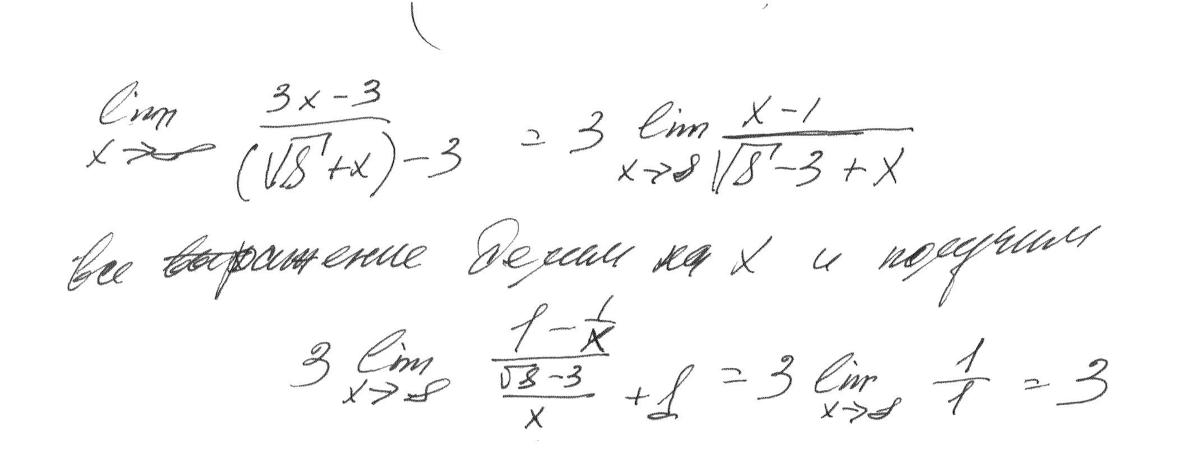 lim x→∞ (3x-3)/((√8+x)-3) = 3 lim x→8 (x-1)/(√8-3+x)
все выражение делим на x и получим
3 lim x→8 (1-1/x)/((√8-3)/x+1) = 3 lim x→8 1/1 = 3